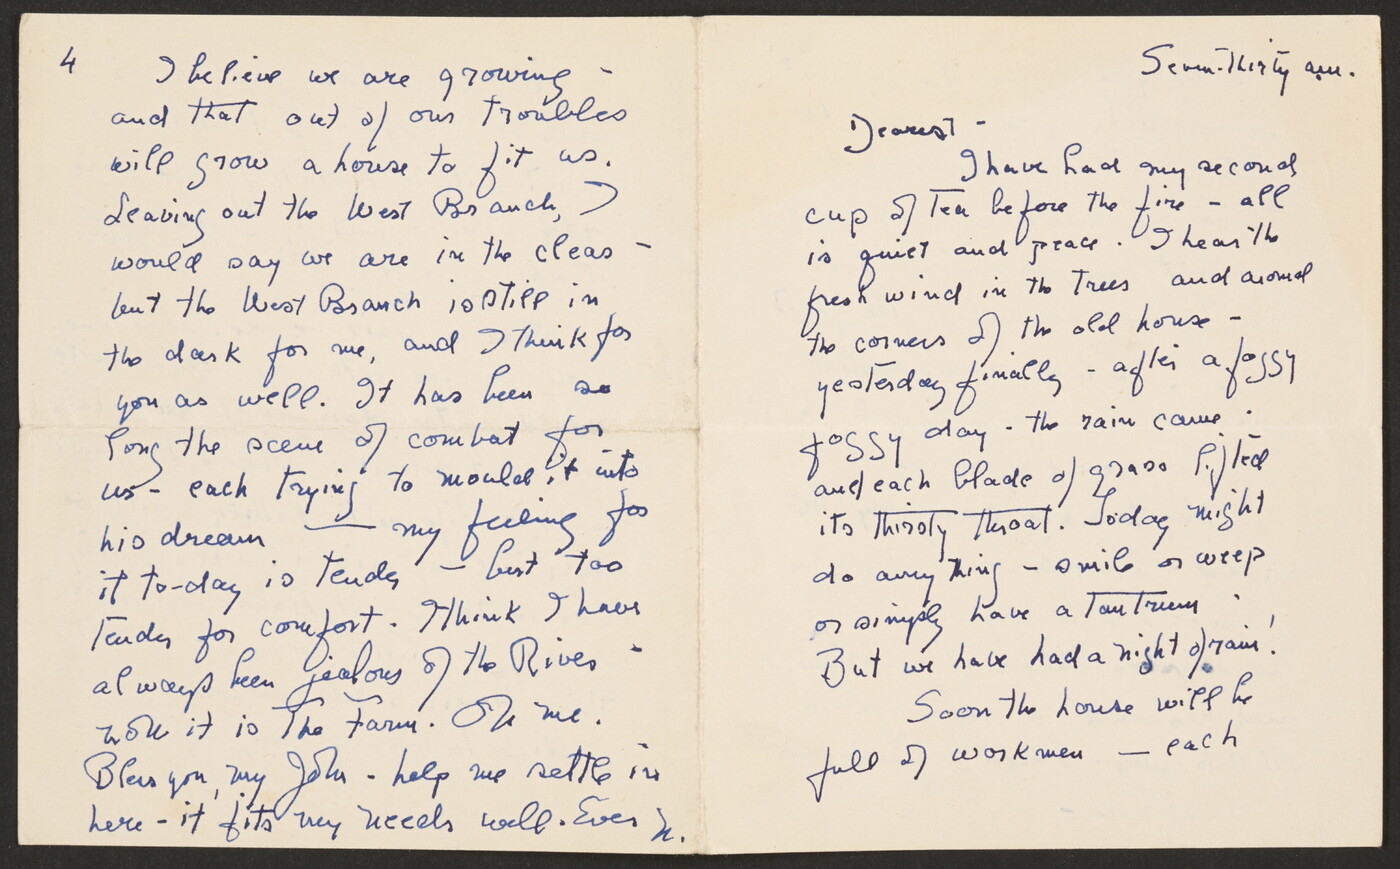 4
I believe we are growing -
and that out of our troubles
will grow a house to fit us.
Leaving out the West Branch, I
would say we are in the clear -
but the West Branch is still in
the dark for me, and I think for
you as well. It has been so
long the scene of combat for
us - each trying to mould it into
his dream — my feeling for
it to-day is tender - but too
tender for comfort. I think I have
always been jealous of the River -
now it is The Farm. Oh me.
Bless you, my John - help me settle in
here - it fits my needs well. Ever N.
Seven-thirty am.
Dearest -
I have had my second
cup of Tea before the fire - all
is quiet and peace. I hear the
fresh wind in the Trees and around
the corners of the old house -
yesterday finally - after a foggy
foggy day - the rain came.
and each blade of grass lifted
its thirsty throat. Today might
do anything - smile or weep
or simply have a Tantrum.
But we have had a night of rain!
Soon the house will be
full of workmen — each